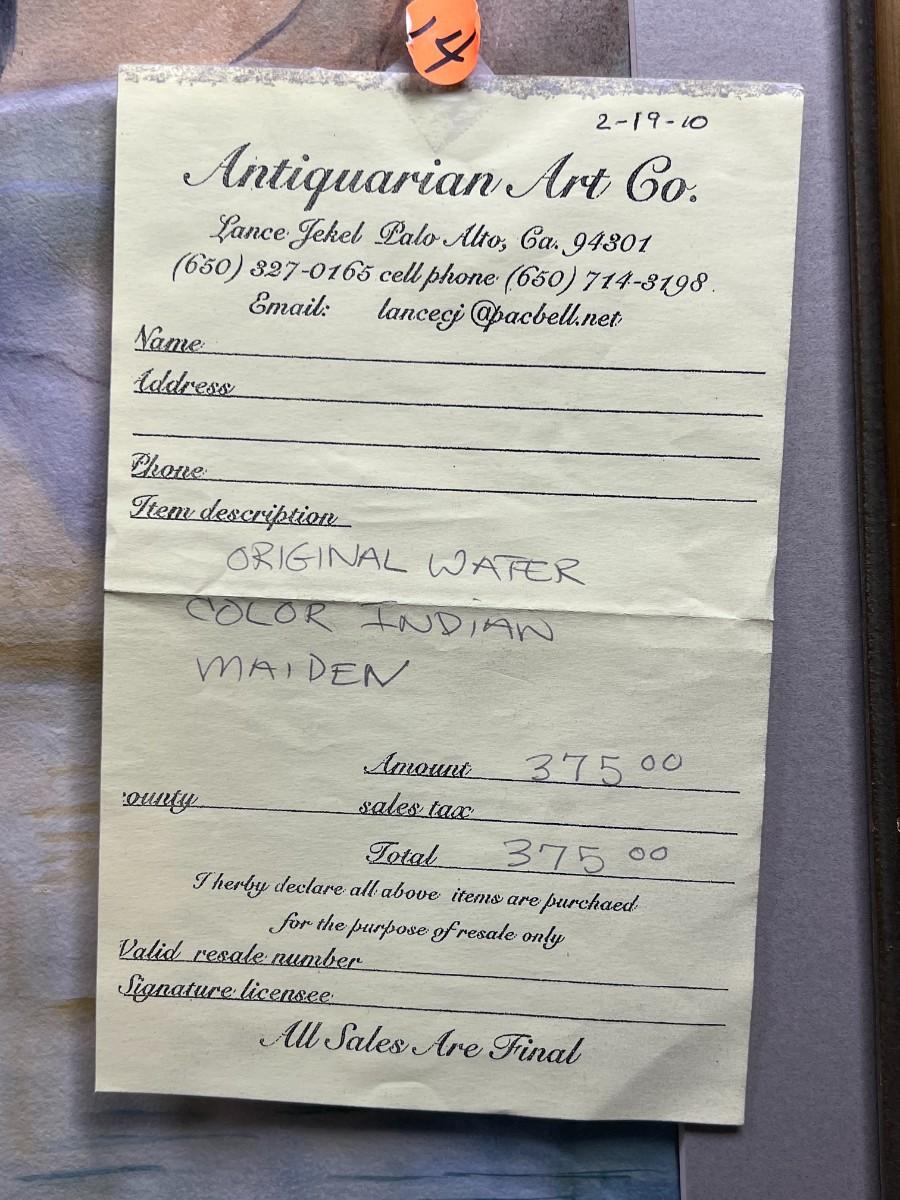 14
2-19-10
Antiquarian Art Co.
Lance Jekel Palo Alto, Ca. 94301
(650) 327-0165 cell phone (650) 714-3198
Email: lancecj @pacbell.net
Name
Address
Phone
Item description
ORIGINAL WATER
COLOR INDIAN
MAIDEN
Amount 375 00
ounty sales tax
Total 375 00
I herby declare all above items are purchaed
for the purpose of resale only
Valid resale number
Signature licensee
All Sales Are Final